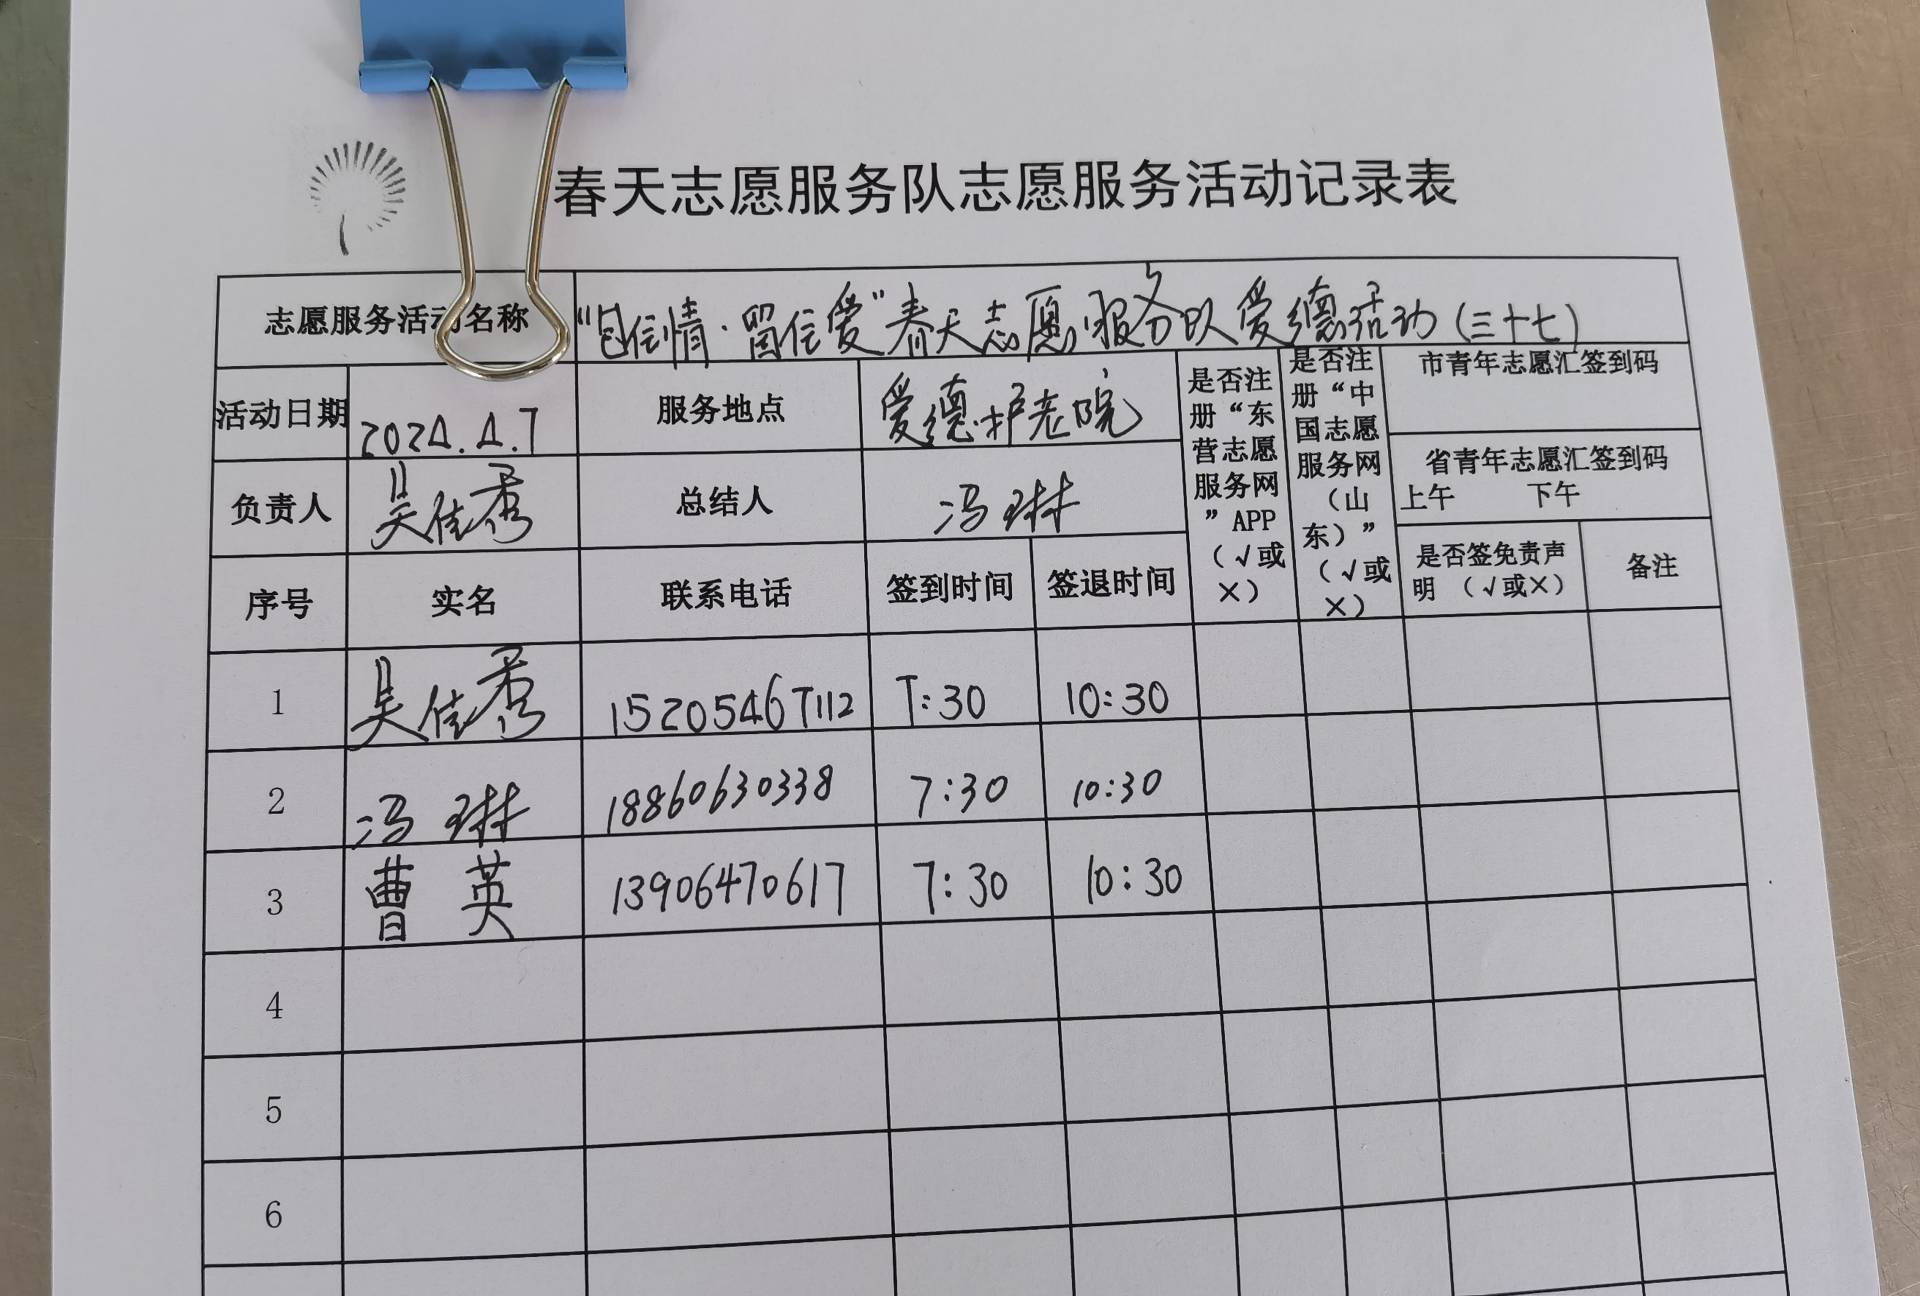 春天志愿服务队志愿服务活动记录表
志愿服务活动名称 “包住情·留住爱”春天志愿服务队爱德活动(三十七)
活动日期 2024.4.7 服务地点 爱德护老院
是否注册“东营志愿服务网”APP(√或×)
是否注册“中国志愿服务网(山东)”(√或×)
市青年志愿汇签到码
省青年志愿汇签到码
上午 下午
负责人 吴佳秀 总结人 冯琳
是否签免责声明 (√或×) 备注
序号 实名 联系电话 签到时间 签退时间
1 吴佳秀 15205467112 7:30 10:30
2 冯琳 18860630338 7:30 10:30
3 曹英 13906470617 7:30 10:30
4
5
6